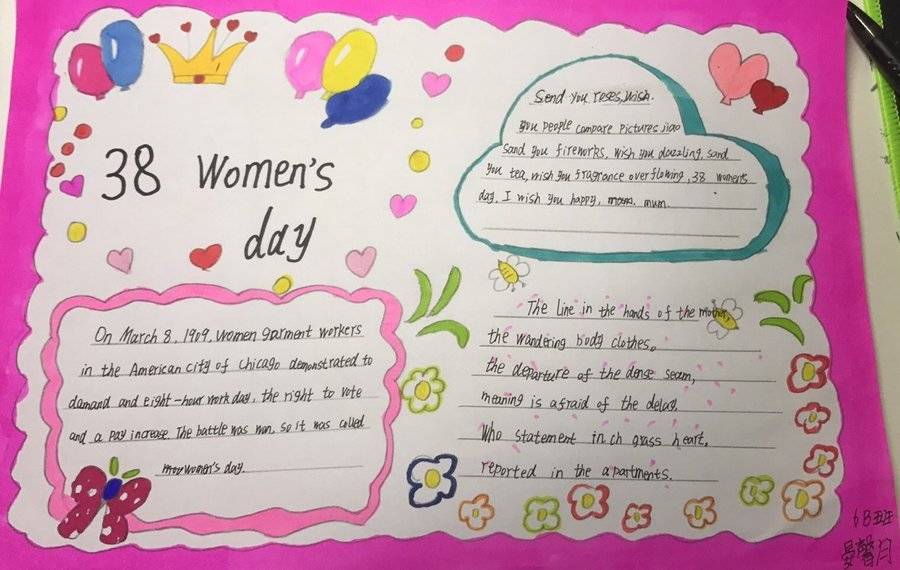 38 Women's
day
Send you reses, wish.
you people compare pictures jiao
sand you fireworks, wish you dazzling, sand
you tea, wish you fragrance overflowing, 38 women's
day, I wish you happy, mum.
On March 8, 1909, women garment workers
in the American city of Chicago demonstrated to
damand and eight-hour work day, the right to vote
and a pay increase. The battle was won. so it was called
women's day
The Line in the hands of the mother,
the wandering body clothes。
the departure of the dense seam,
meaning is afraid of the delay.
Who statement inch grass heart,
reported in the apartments.
6B班
晏馨月